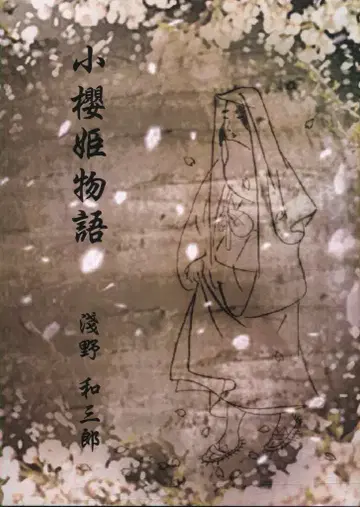 小櫻姫物語
淺野 和三郎